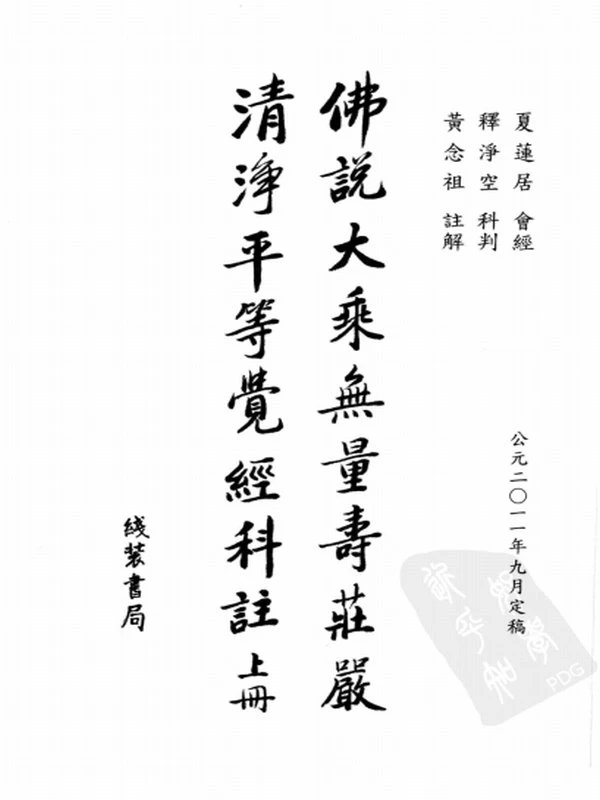 夏蓮居 會經
釋淨空 科判
黃念祖 註解
公元二〇一一年九月定稿
佛説大乘無量壽莊嚴
清淨平等覺經科註 上冊
綫装書局
PDG